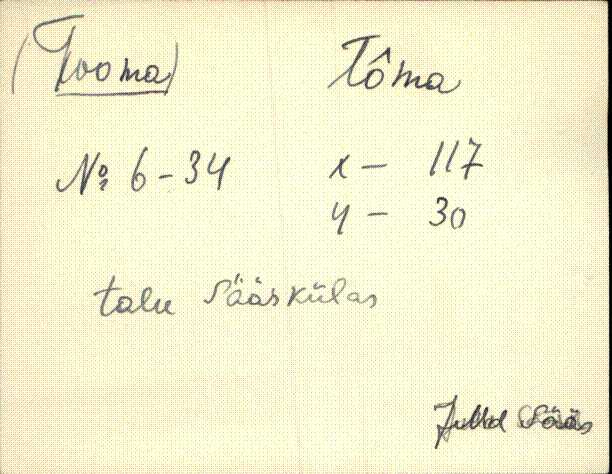 (Tooma) Tôma
№ 6-34 x - 117
y - 30
talu Sääskülas
Sääs